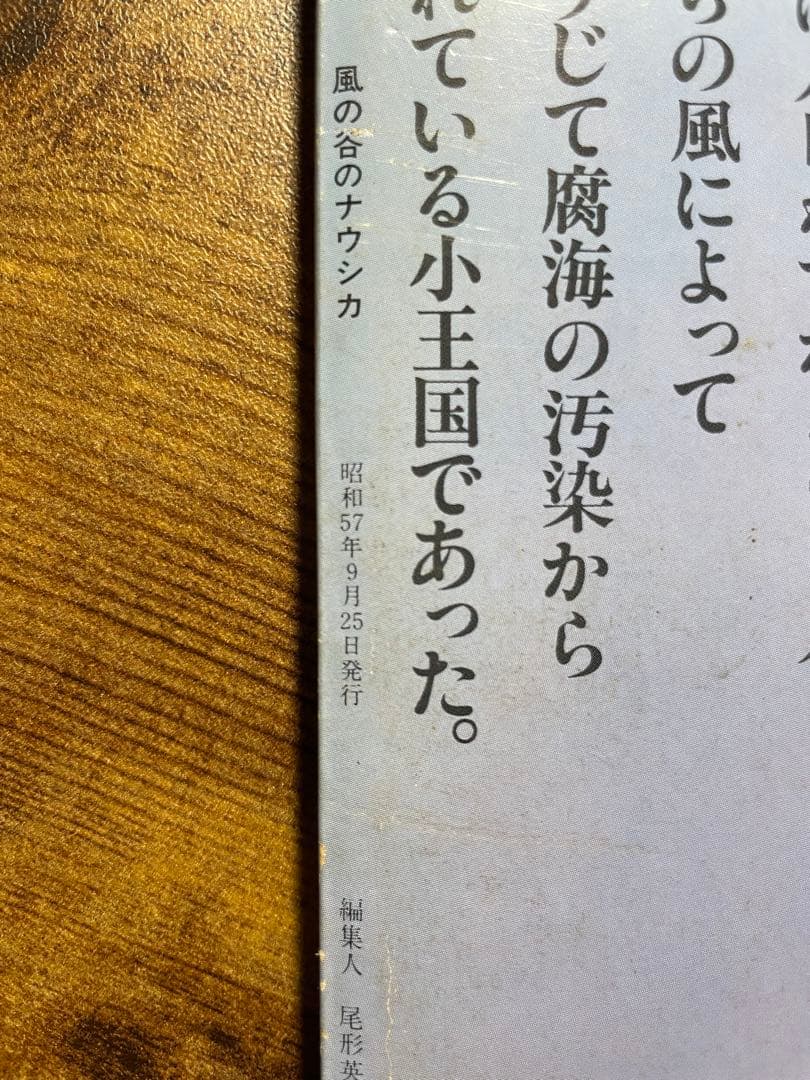 らの風によって
うじて腐海の汚染から
れている小王国であった。
風の谷のナウシカ
昭和57年9月25日発行
編集人 尾形英